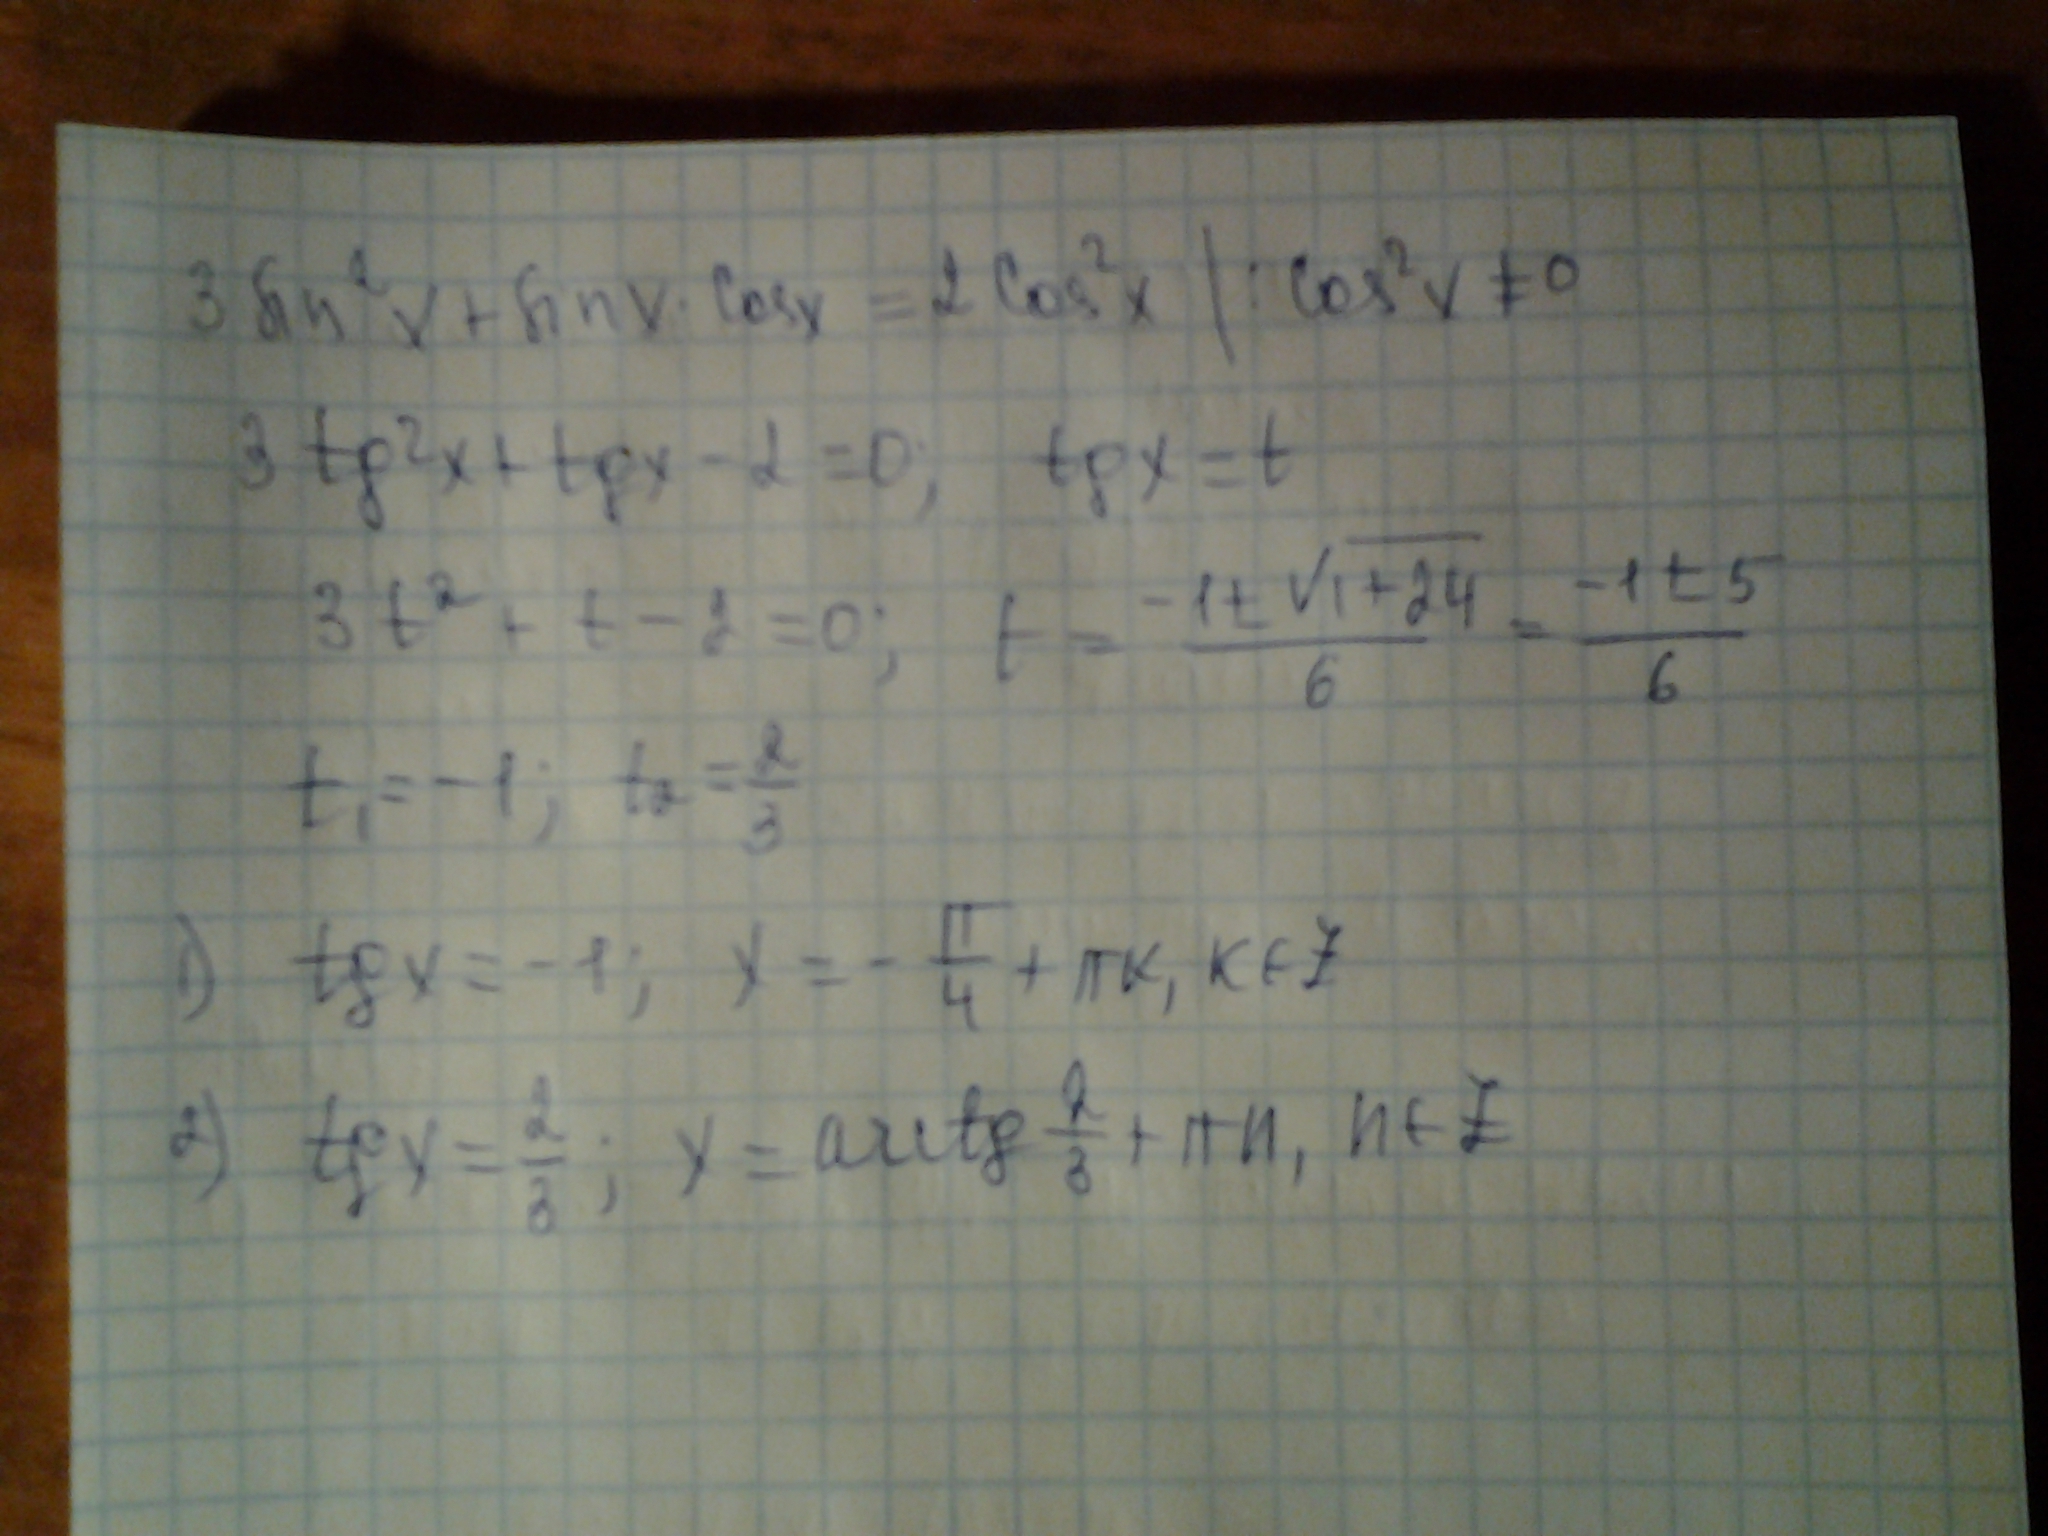 3 sin²x + sin x · cos x = 2 cos²x | : cos²x ≠ 0
3 tg²x + tgx - 2 = 0; tgx = t
3t² + t - 2 = 0; t = (-1 ± √(1+24))/6 = (-1 ± 5)/6
t₁ = -1; t₂ = 2/3
1) tgx = -1; x = -π/4 + πk, k ∈ Z
2) tgx = 2/3; x = arctg 2/3 + πn, n ∈ Z